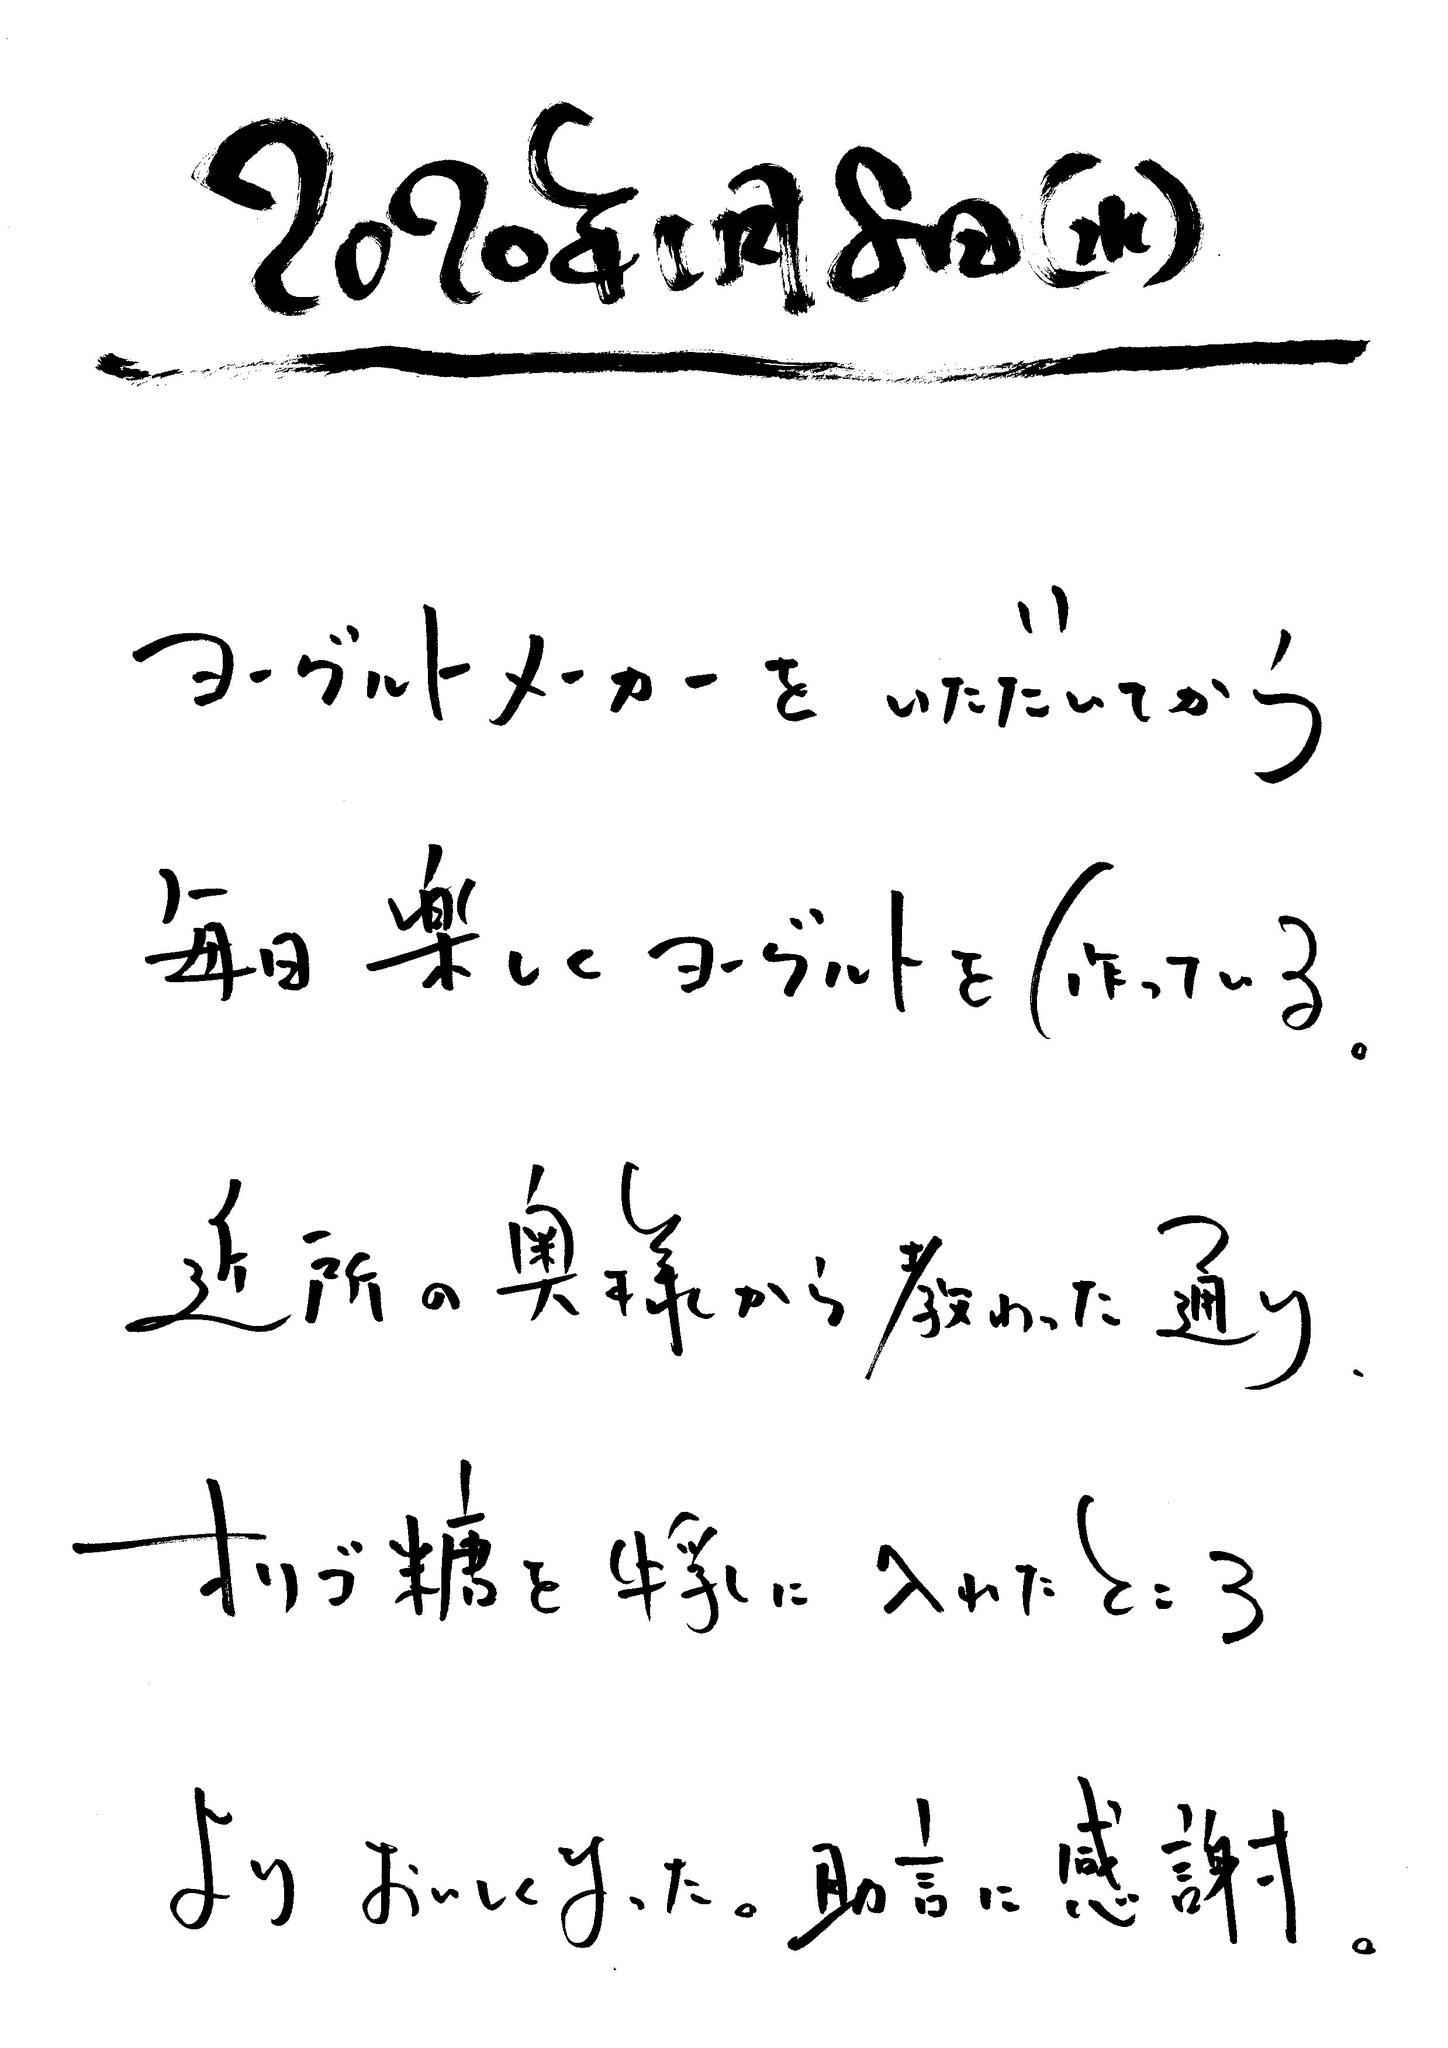 2020年1月8日(水)
ヨーグルトメーカーを いただいてから
毎日 楽しく ヨーグルトを 作っている。
近所の奥様から教わった通り、
オリゴ糖を牛乳に 入れたところ
より おいしくなった。助言に感謝。